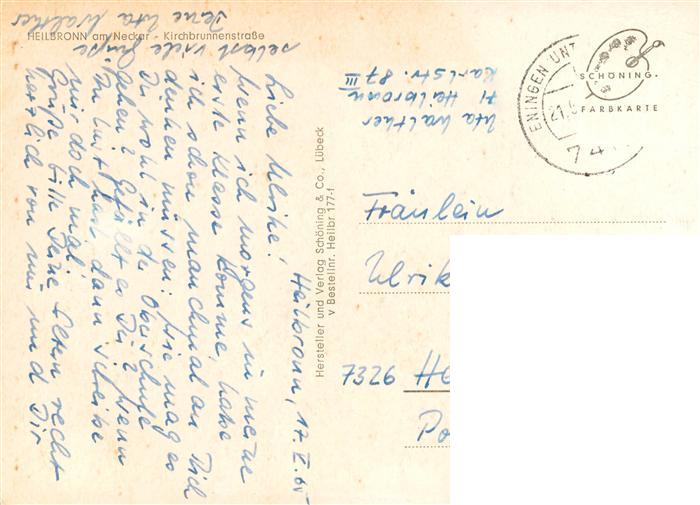 HEILBRONN am Neckar - Kirchbrunnenstraße
Heilbronn, 17. X. 65
Liebe Ulrike!
Wenn ich morgens in meine
erste Klasse komme, habe
ich schon manchmal an Dich
denken müssen: wie mag es
Dir wohl in der Oberschule
gehen? Gefällt es Dir? Wenn
Du Lust hast, dann schreibe
mir doch mal!
Grüße bitte Deine Eltern recht
herzlich von mir und Dir
selbst viele Grüße
Deine Uta Walther
Hersteller und Verlag Schöning & Co., Lübeck
v Bestellnr. Heilbr 177-f
Uta Walther
71 Heilbronn
Karlstr. 87 III
SCHÖNING-
FARBKARTE
ENINGEN UNT
21.
74
Fräulein
Ulrik
7326 He
Po